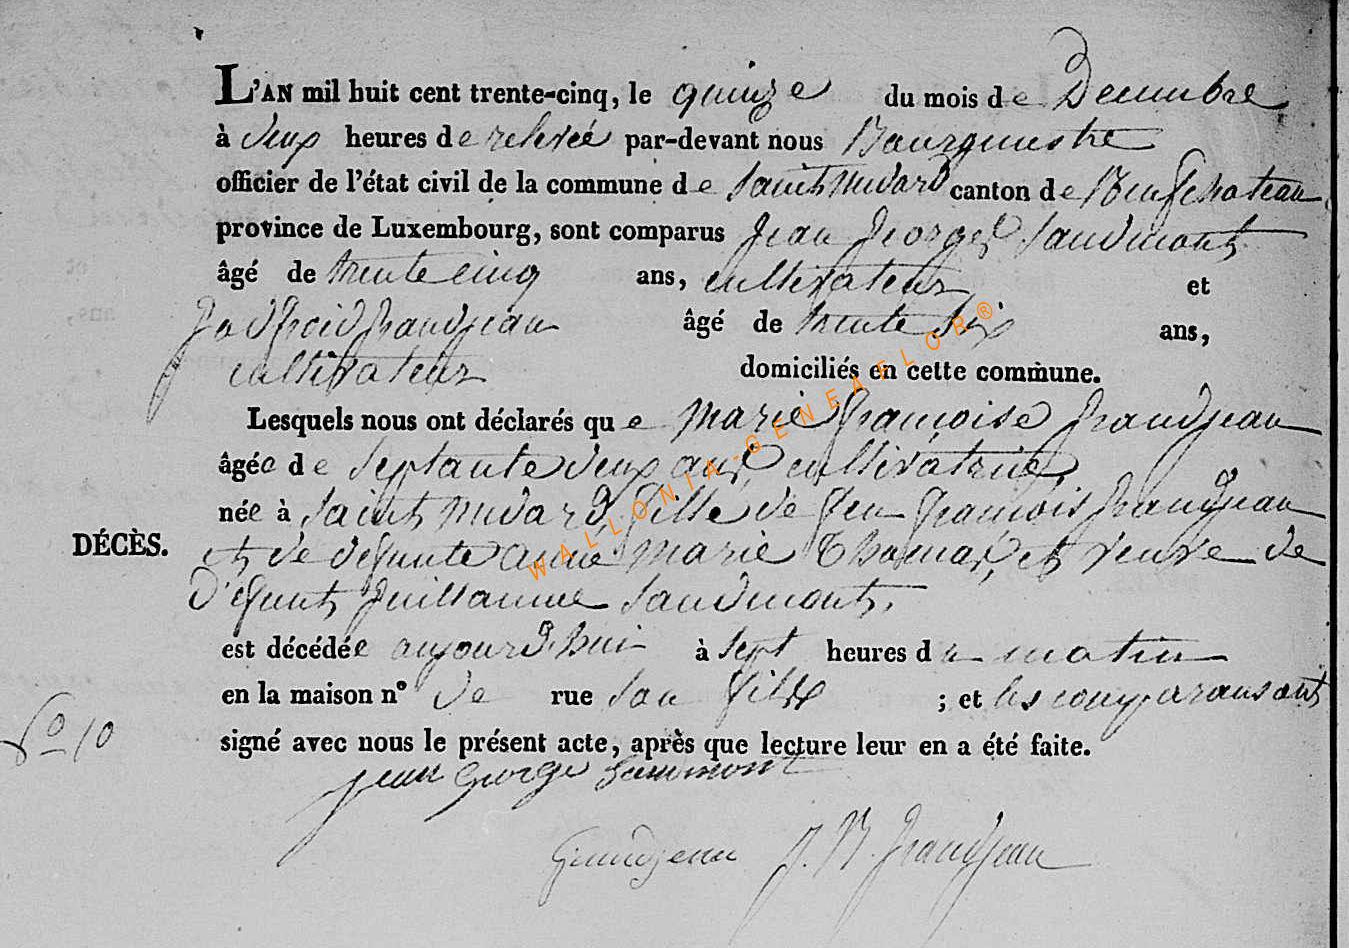 L'AN mil huit cent trente-cinq, le quinze du mois de Decembre
à deux heures de relevée par-devant nous Bourguestre
officier de l'état civil de la commune de Saint Medard canton de Neufchateau
province de Luxembourg, sont comparus Jean George Saudmont
âgé de trente cinq ans, cultivateur et
Godfroid Grandjean âgé de trente six ans,
cultivateur domiciliés en cette commune.
Lesquels nous ont déclarés que Marie Françoise Grandjean
âgée de septante deux ans, cultivatrice,
née à Saint Medard, fille de feu François Grandjean
DÉCÈS.
et de defunte anne Marie Thomas, et veuve de
Défunt Guillaume Saudmont,
est décédée aujourd'hui à sept heures du matin
en la maison n° de rue son fils ; et les comparans ont
N° 10
signé avec nous le présent acte, après que lecture leur en a été faite.
Jean George Saudmont
Grandjean J. N. Grandjean
WALLONIA-GENEAFLOR®